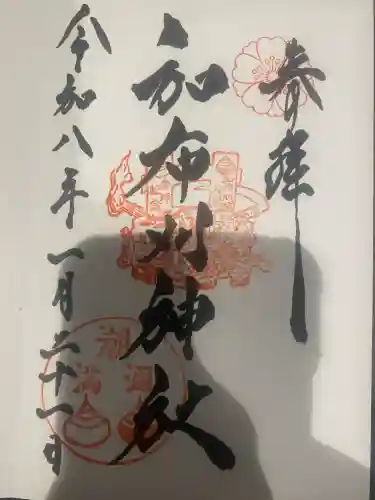 参拝
和布刈神社
令和八年一月二十一日